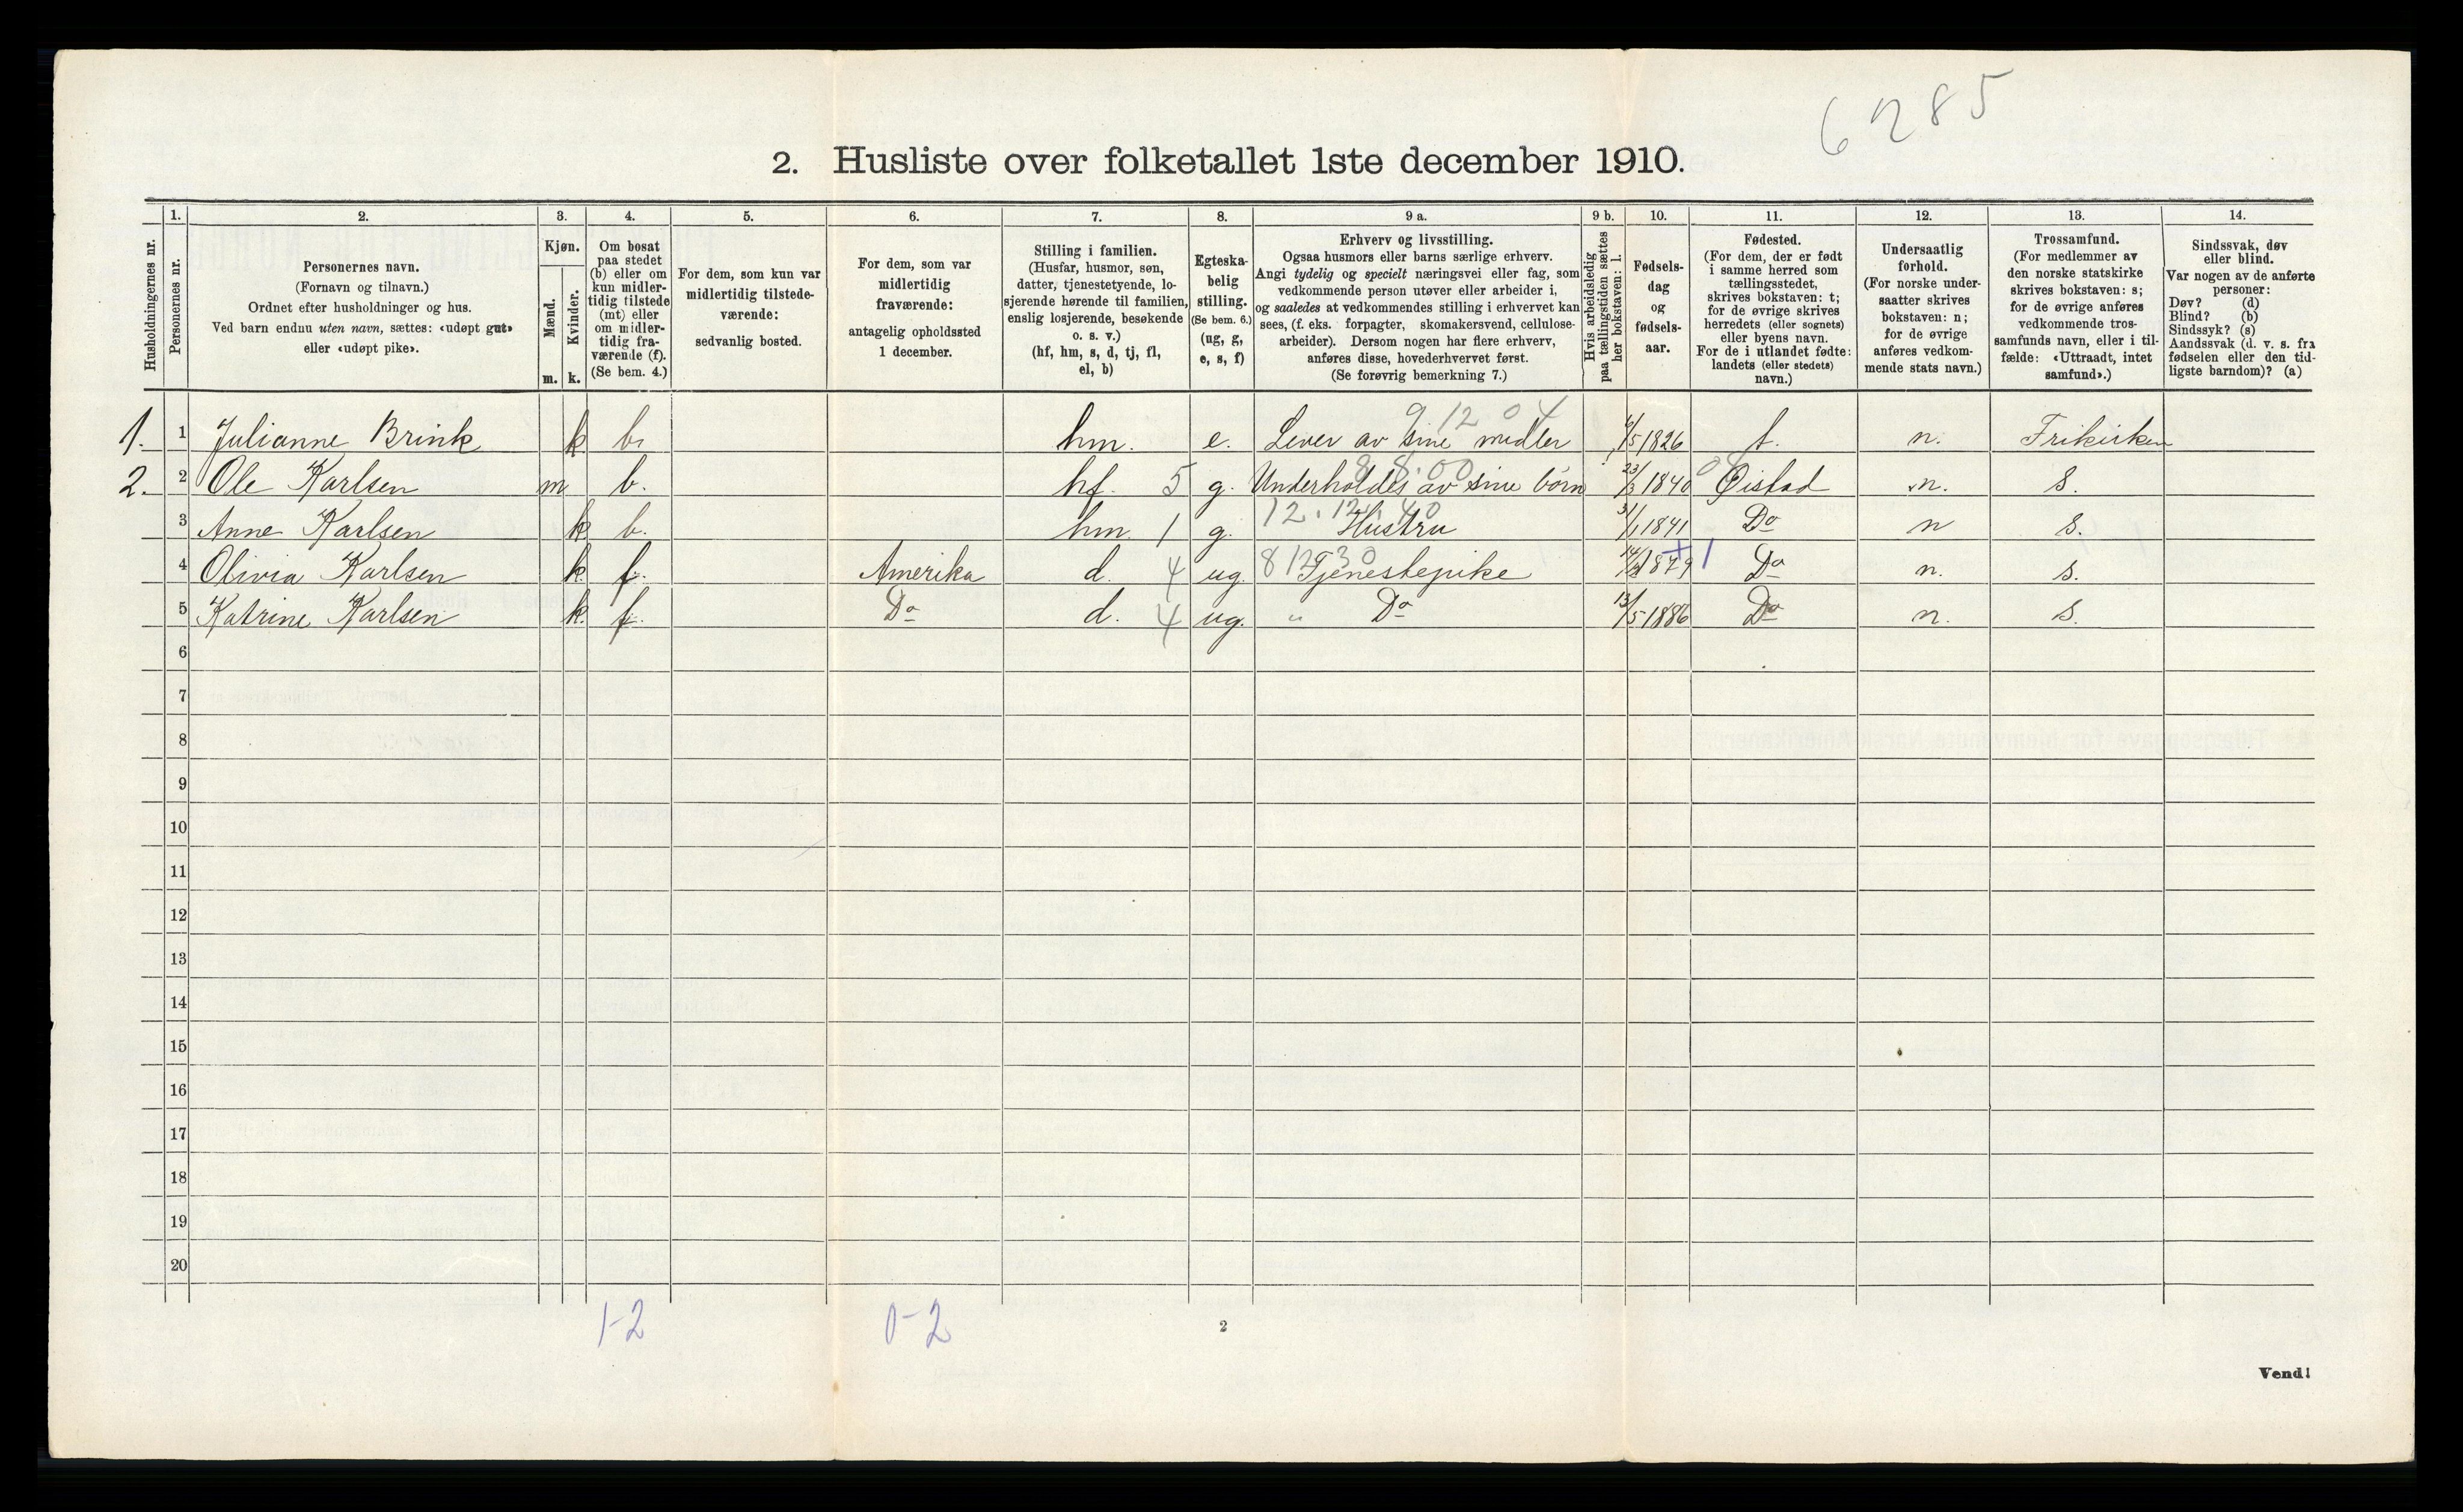 6285
2. Husliste over folketallet 1ste december 1910.
Husholdningernes nr.
1.
Personernes nr.
2.
Personernes navn.
(Fornavn og tilnavn.)
Ordnet efter husholdninger og hus.
Ved barn endnu uten navn, sættes: «udøpt gut»
eller «udøpt pike».
3.
Kjøn.
Mænd.
m.
Kvinder.
k.
4.
Om bosat
paa stedet
(b) eller om
kun midler-
tidig tilstede
(mt) eller
om midler-
tidig fra-
værende (f).
(Se bem. 4.)
5.
For dem, som kun var
midlertidig tilstede-
værende:
sedvanlig bosted.
6.
For dem, som var
midlertidig
fraværende:
antagelig opholdssted
1 december.
7.
Stilling i familien.
(Husfar, husmor, søn,
datter, tjenestetyende, lo-
sjerende hørende til familien,
enslig losjerende, besøkende
o. s. v.)
(hf, hm, s, d, tj, fl,
el, b)
8.
Egteska-
belig
stilling.
(Se bem. 6.)
(ug, g,
e, s, f)
9 a.
Erhverv og livsstilling.
Ogsaa husmors eller barns særlige erhverv.
Angi tydelig og specielt næringsvei eller fag, som
vedkommende person utøver eller arbeider i,
og saaledes at vedkommendes stilling i erhvervet kan
sees, (f. eks. forpagter, skomakersvend, cellulose-
arbeider). Dersom nogen har flere erhverv,
anføres disse, hovederhvervet først.
(Se forøvrig bemerkning 7.)
9 b.
Hvis arbeidsledig
paa tællingstiden sættes
her bokstaven: l.
10.
Fødsels-
dag
og
fødsels-
aar.
11.
Fødested.
(For dem, der er født
i samme herred som
tællingsstedet,
skrives bokstaven: t;
for de øvrige skrives
herredets (eller sognets)
eller byens navn.
For de i utlandet fødte:
landets (eller stedets)
navn.)
12.
Undersaatlig
forhold.
(For norske under-
saatter skrives
bokstaven: n;
for de øvrige
anføres vedkom-
mende stats navn.)
13.
Trossamfund.
(For medlemmer av
den norske statskirke
skrives bokstaven: s;
for de øvrige anføres
vedkommende tros-
samfunds navn, eller i til-
fælde: «Uttraadt, intet
samfund».)
14.
Sindssvak, døv
eller blind.
Var nogen av de anførte
personer:
Døv? (d)
Blind? (b)
Sindssyk? (s)
Aandssvak (d. v. s. fra
fødselen eller den tid-
ligste barndom)? (a)
9 12 04
1. 1 Julianne Brink k b. hm. e. Lever av sine midler /5 1826 t. n. Frikirken
8 8.00
2. 2 Ole Karlsen m b. hf. 5 g. Underholdes av sine børn 23/3 1840 Øistad n. s.
12.12.40
3 Anne Karlsen k. b. hm. 1 g. Hustru 31/1 1841 Do n s.
4 Olivia Karlsen k. f. Amerika d. 4 ug. 81230 Tjenestepike 1879 Do n. s.
5 Katrine Karlsen k. f. Do d. 4 ug. " Do 13/5 1886 Do n. s.
6
7
8
9
10
11
12
13
14
15
16
17
18
19
20
1-2 0-2
2
Vend!